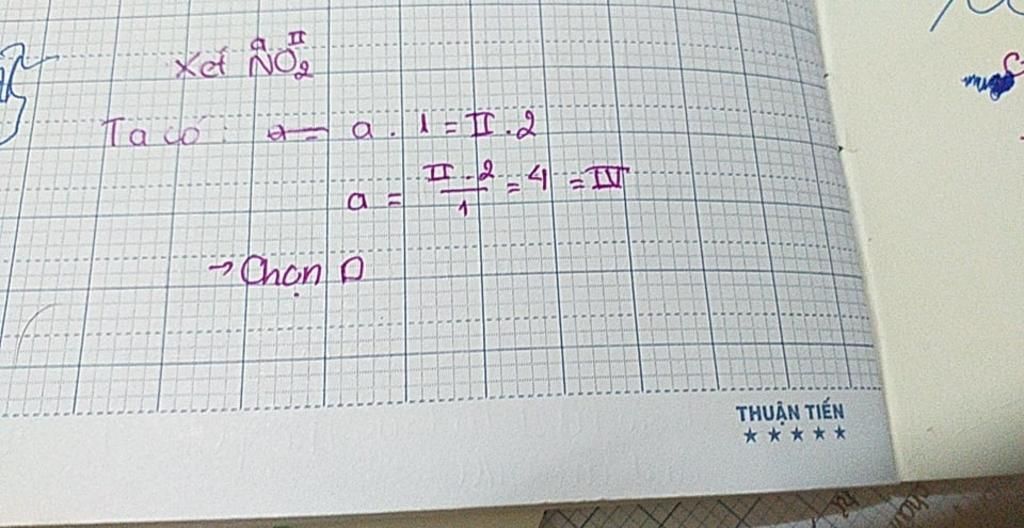 Xét NO₂ᴵᴵ
Ta có: a . 1 = II . 2
a = II . 2 / 1 = 4 = IV
→ Chọn D
THUẬN TIẾN
★★★★★